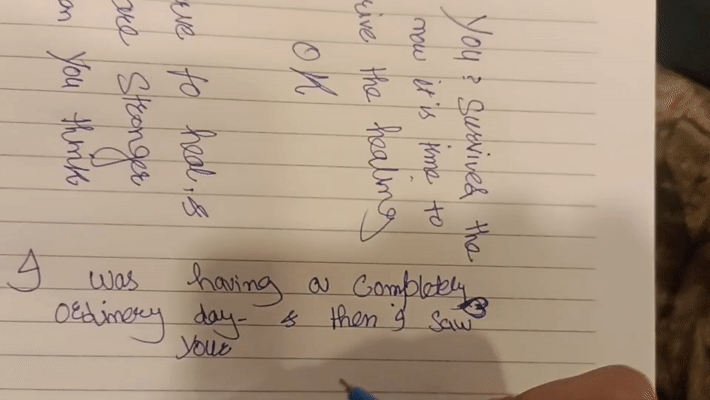 You? Survived the
now it is time to
the healing
OK
to heal. &
are Stronger
you think
I was having a completely
ordinary day- & then I saw
you